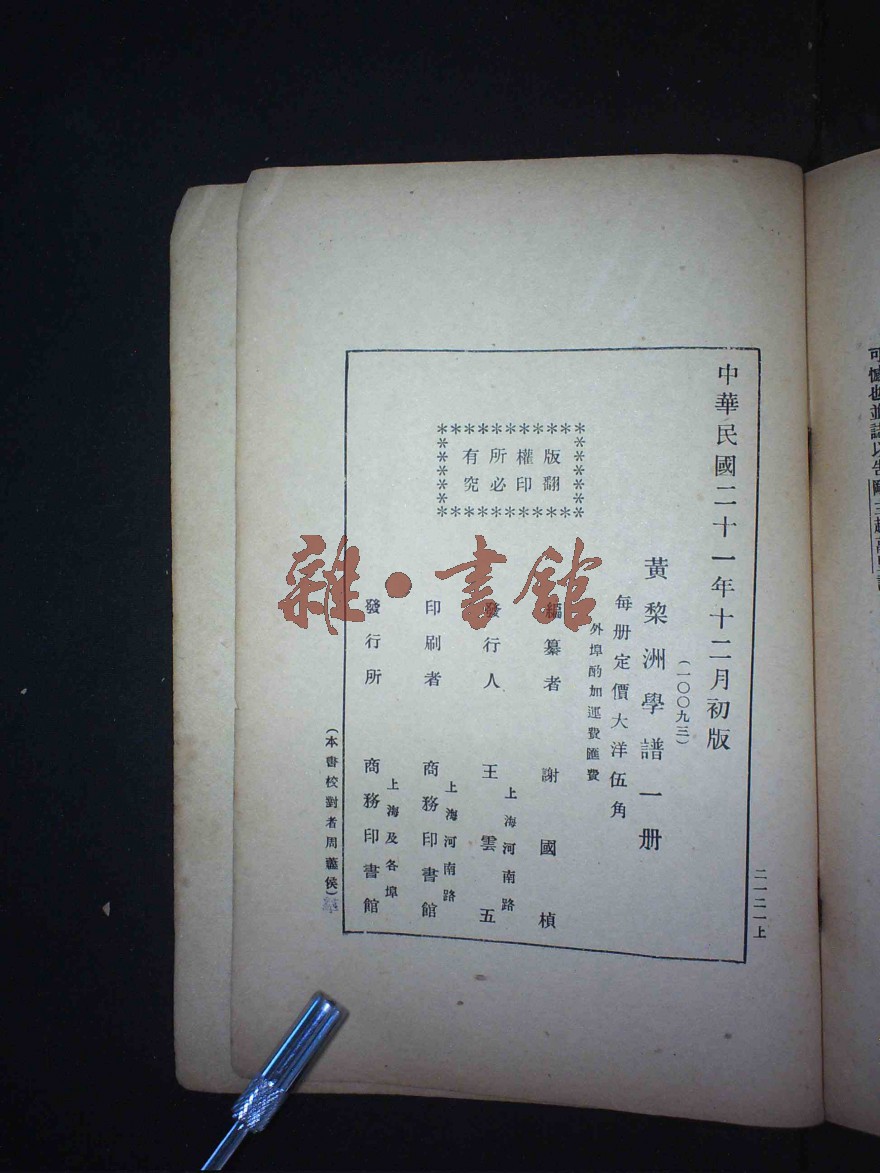 中華民國二十一年十二月初版
(一〇〇九三)
黃棃洲學譜一册
每册定價大洋伍角
外埠酌加運費匯費
版權所有
翻印必究
編纂者 謝國楨
發行人 上海河南路 王雲五
印刷者 上海河南路 商務印書館
發行所 上海及各埠 商務印書館
(本書校對者周蘊侯)
二一二一上
雜·書館